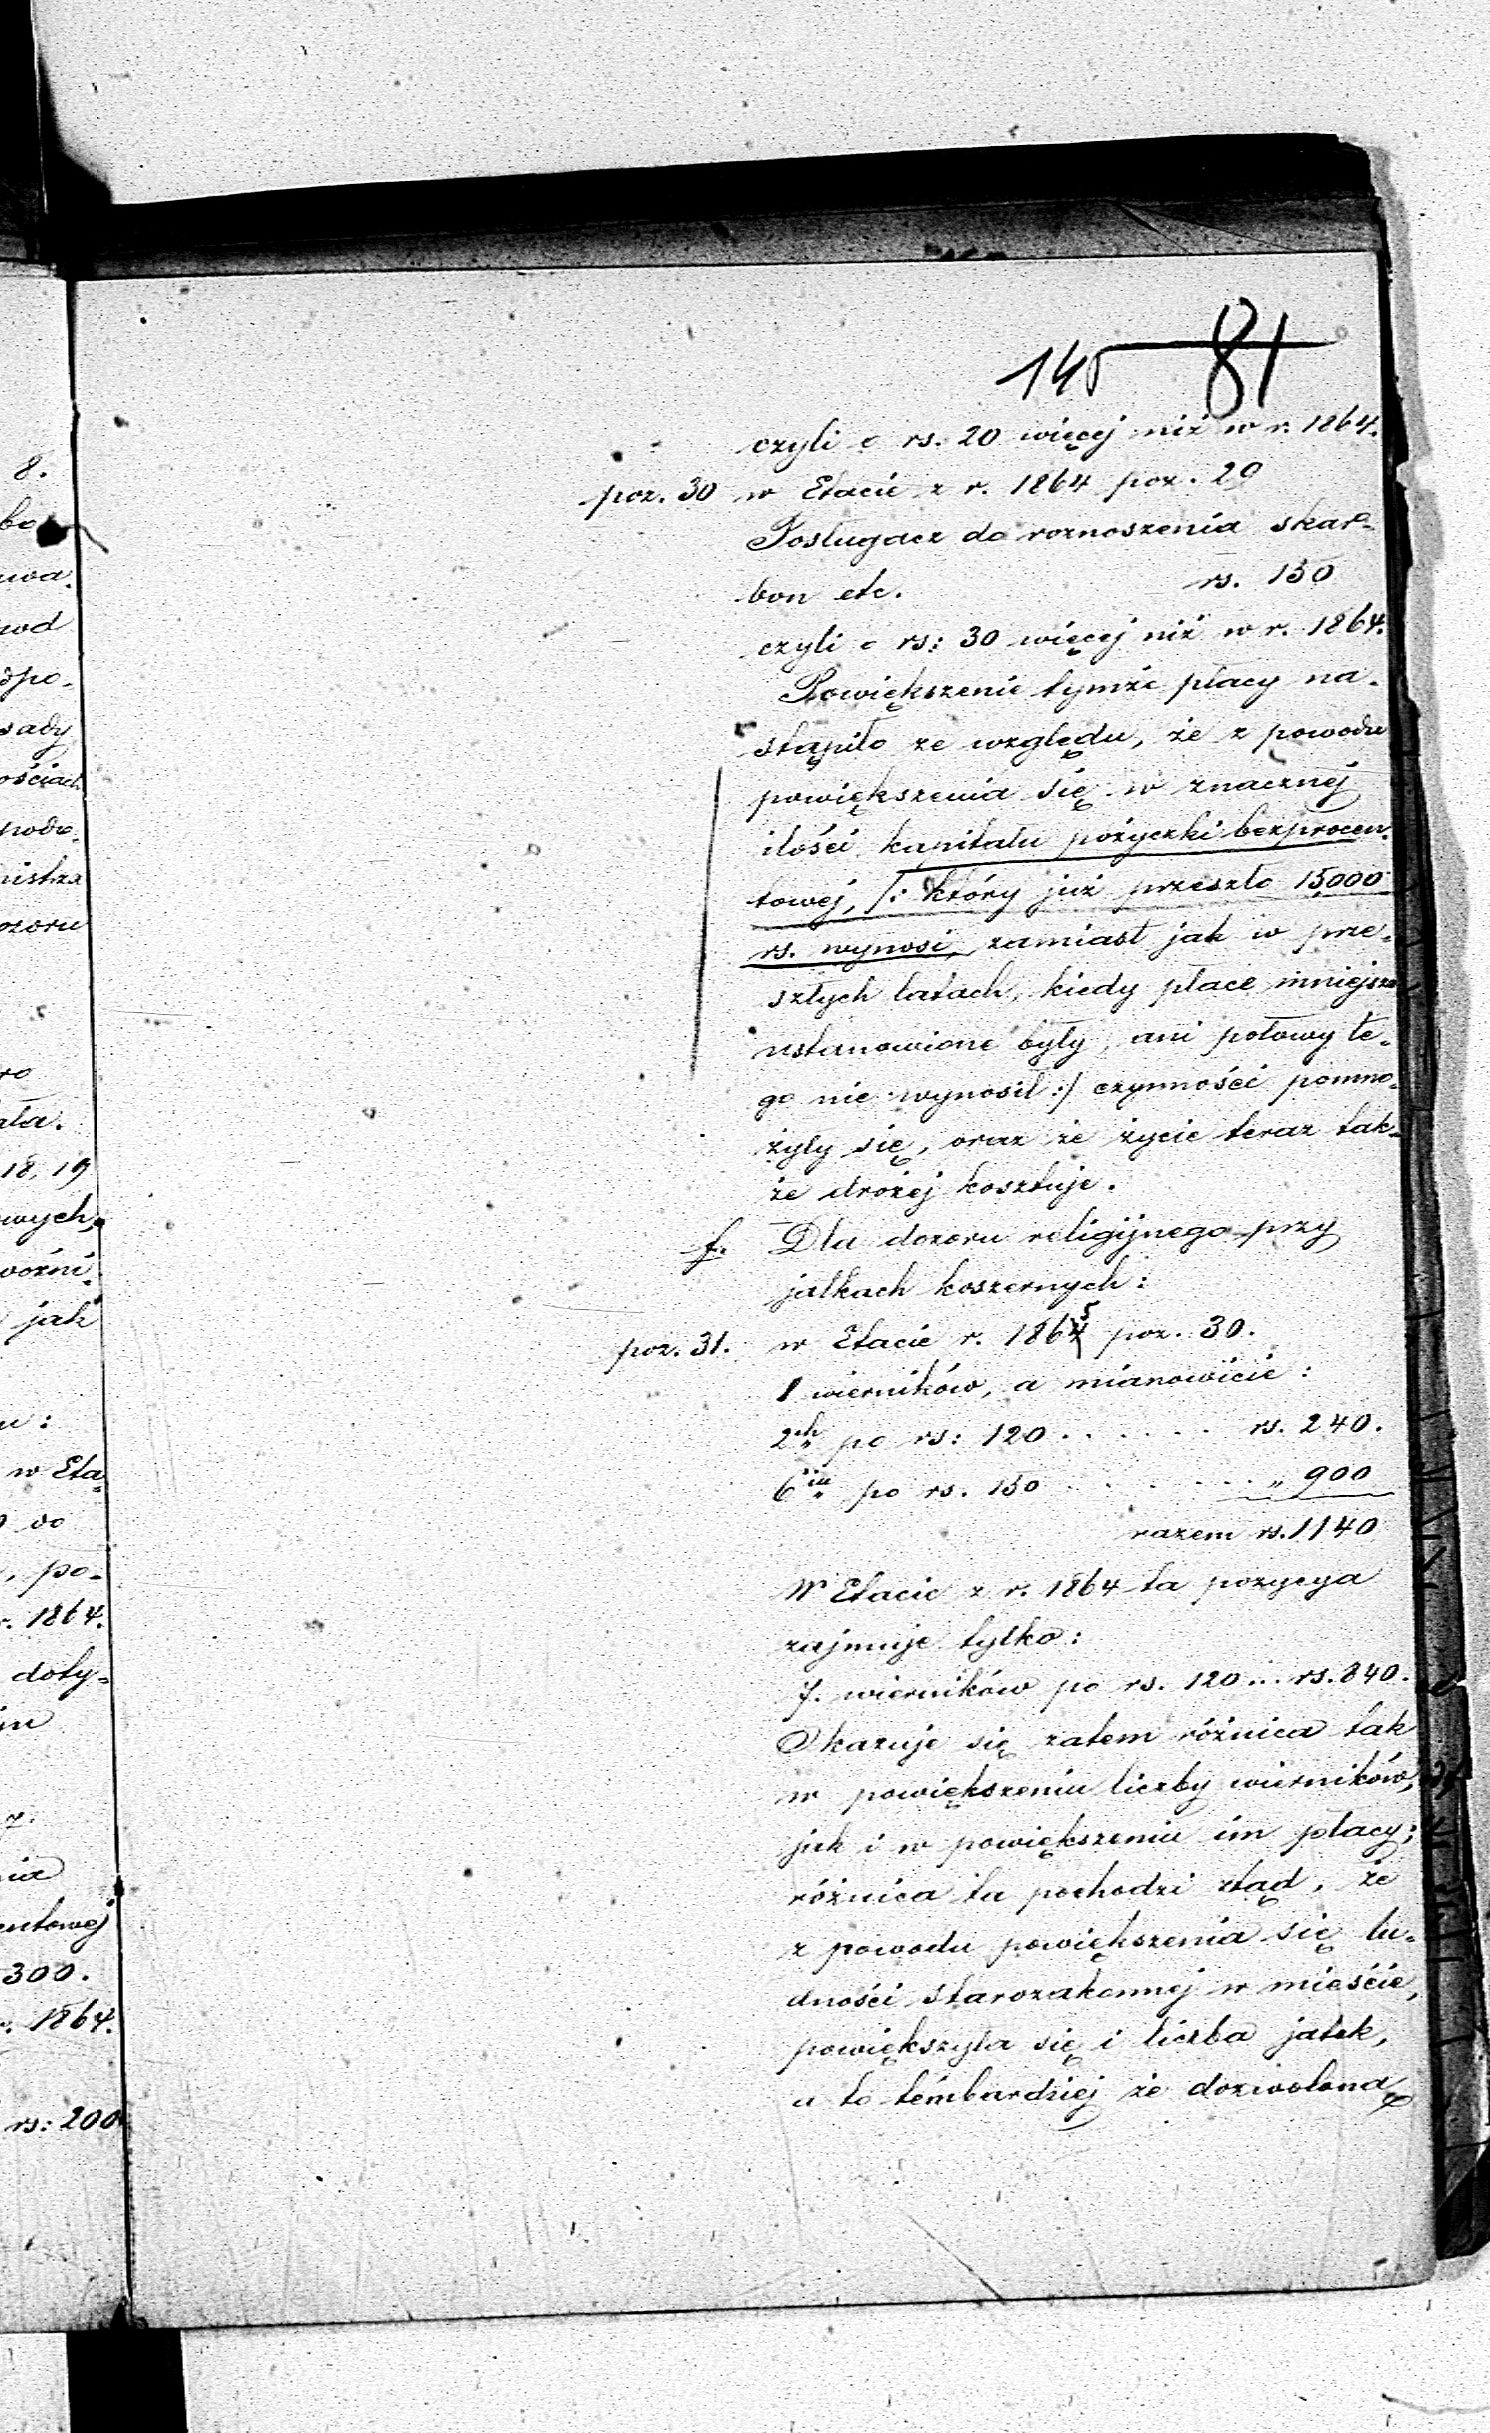 145 81
czyli o rs. 20 więcej niż w r. 1864.
poz. 30 w Etacie z r. 1864 poz. 29
Posługacz do roznoszenia skar-
bon etc. rs. 150
czyli o rs: 30 więcej niż w r. 1864.
Powiększenie tymże płacy na-
stąpiło ze względu, że z powodu
powiększenia się w znacznej
ilości kapitału pożyczki bezprocen-
towej, /: który już przeszło 15000
rs. wynosi, zamiast jak w prze-
szłych latach, kiedy płace mniejsze
ustanowione były, ani połowy te-
go nie wynosił :/ czynności pomno-
żyły się, oraz że życie teraz tak-
że drożej kosztuje.
f. Dla dozoru religijnego przy
jatkach koszernych:
poz. 31. w Etacie r. 1865 poz. 30.
wierników, a mianowicie:
2ch po rs: 120 . . . . . . rs. 240.
6iu po rs. 150 . . . . . . „ 900
razem rs. 1140
W Etacie z r. 1864 ta pozycya
zajmuje tylko:
7. wierników po rs. 120 ... rs. 840.
Okazuje się zatem różnica tak
w powiększeniu liczby wierników,
jak i w powiększeniu im płacy;
różnica ta pochodzi ztąd, że
z powodu powiększenia się lu-
dności starozakonnej w mieście,
powiększyła się i liczba jatek,
a to tembardziej że dozwoloną
8.
bo
uwa.
spo-
sady
ościach
ozoru
ro
ała.
18, 19
owych,
jak
u:
w Eta-
do
, po-
r. 1864.
doty-
im
nia
entowej
300.
r. 1864.
rs: 200